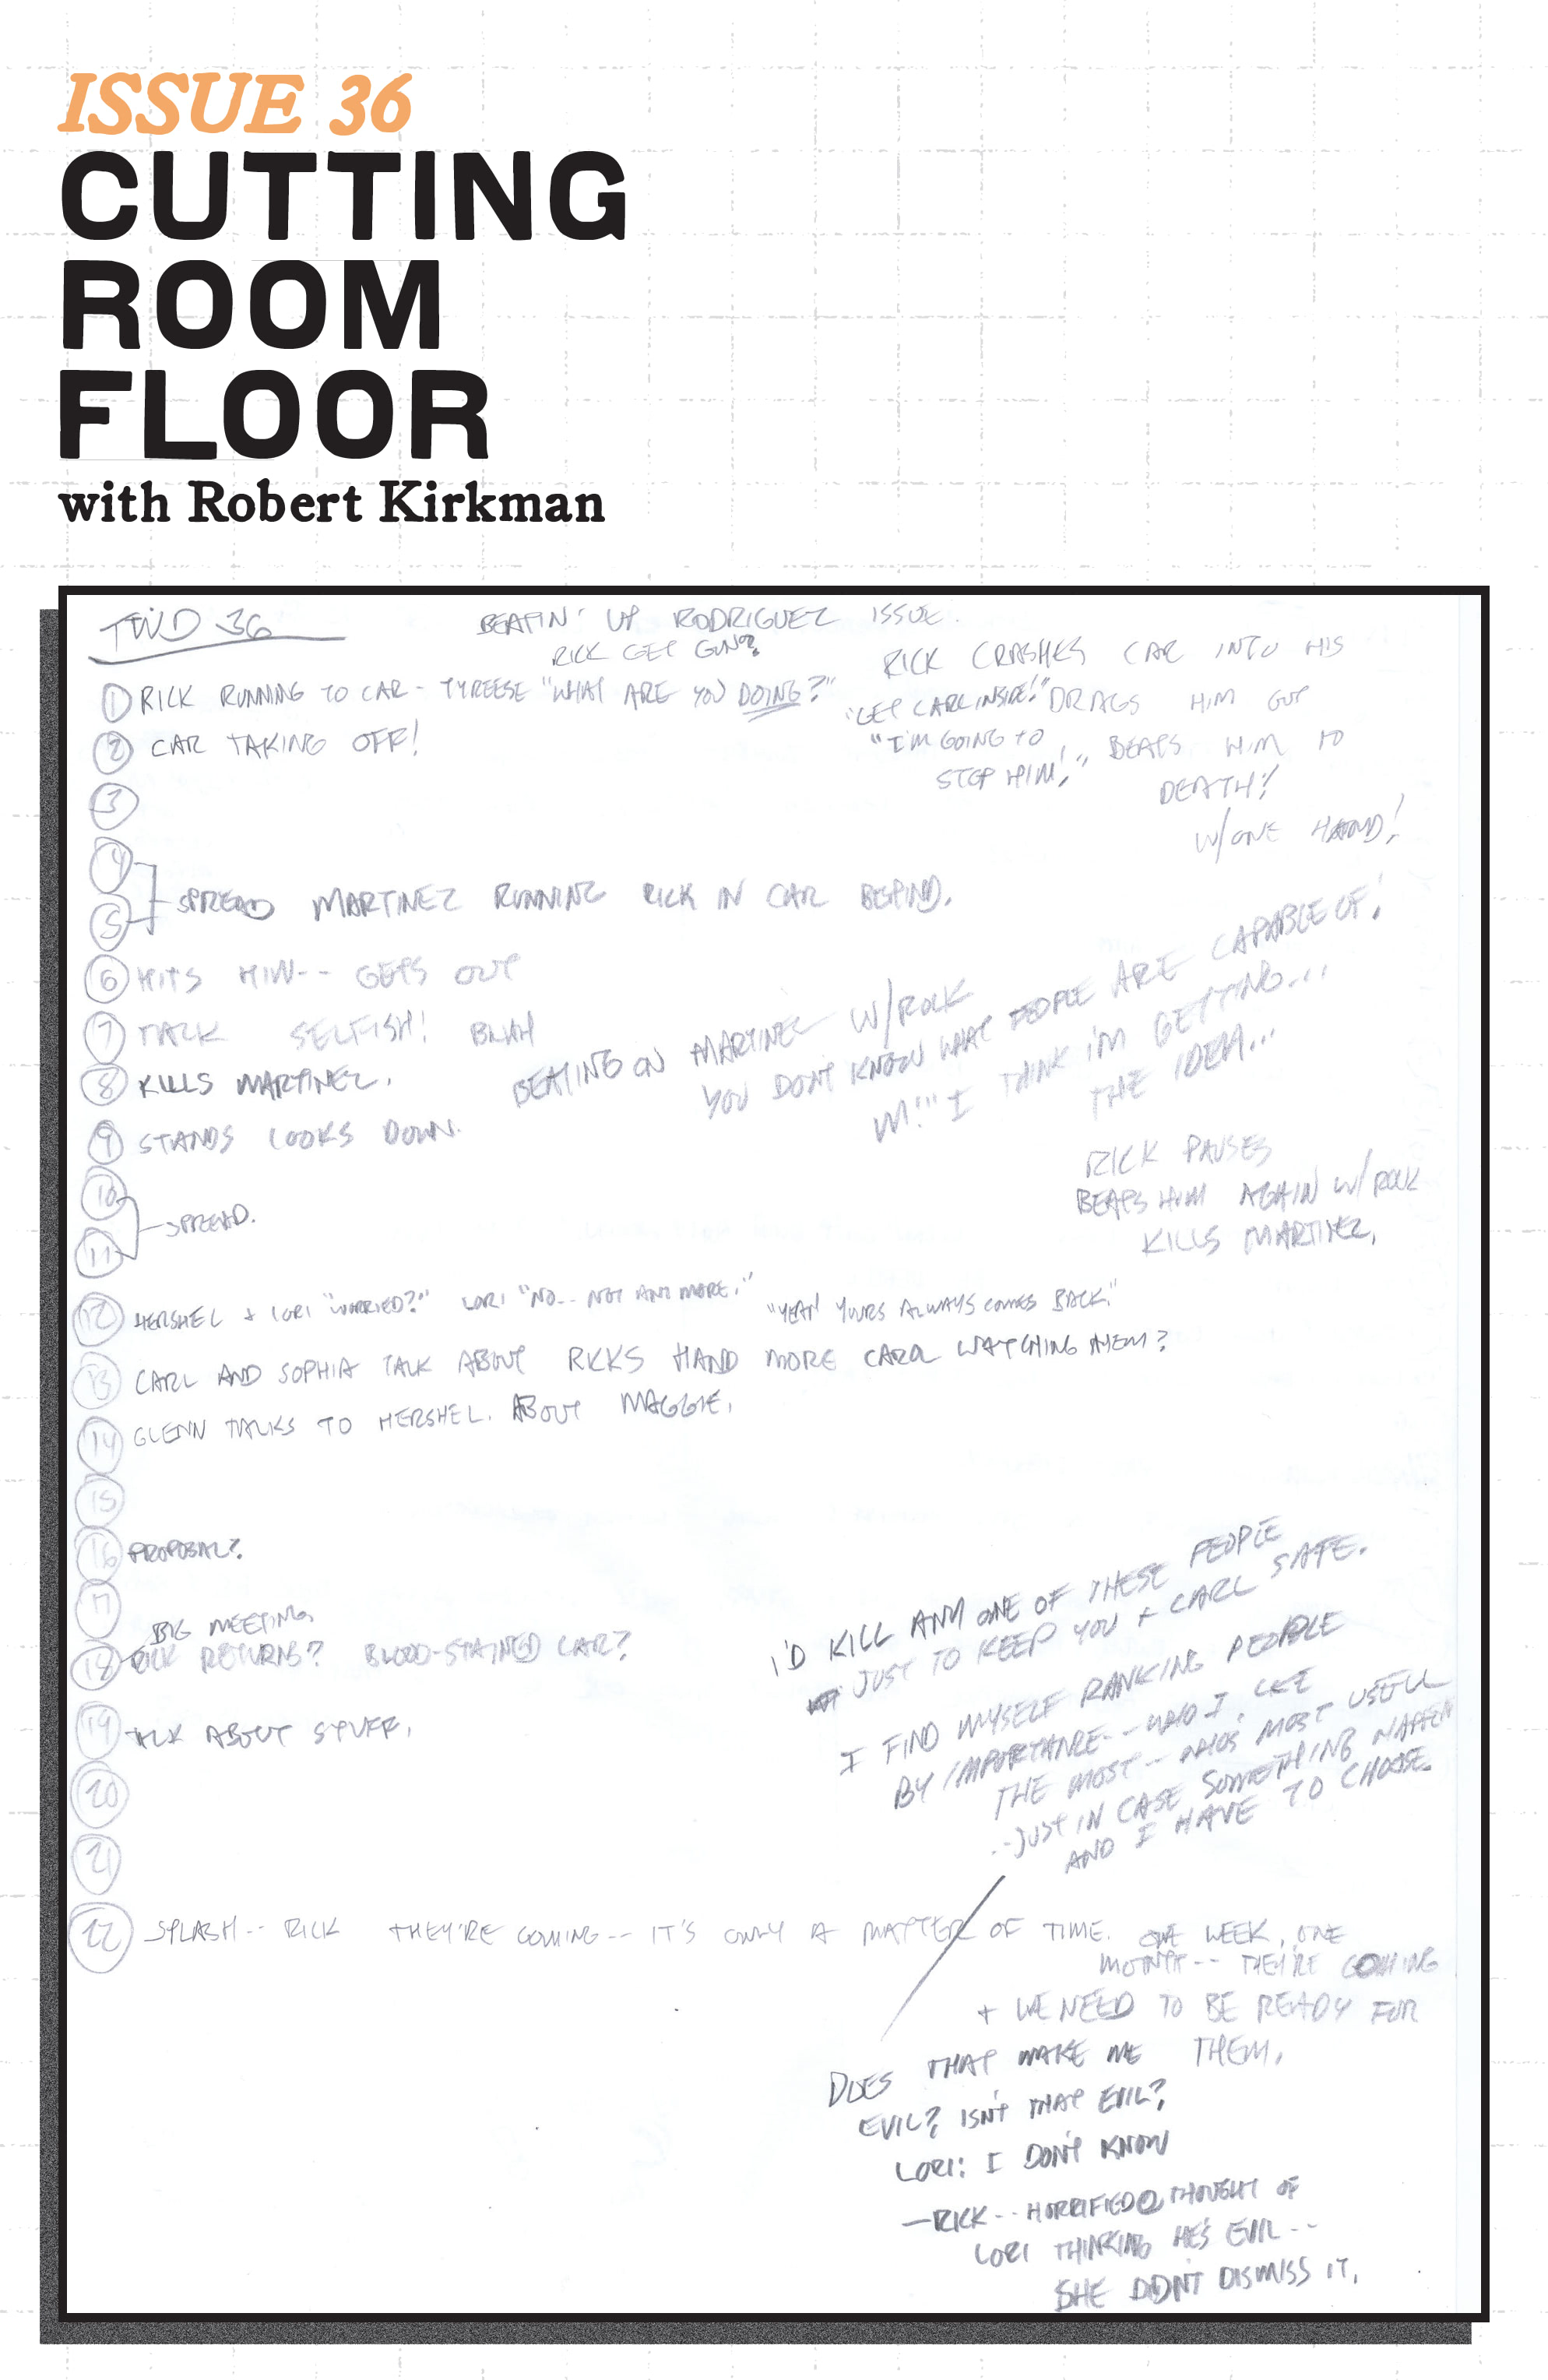 ISSUE 36
CUTTING
ROOM
FLOOR
with Robert Kirkman
TWD 36
BEATIN' UP RODRIGUEZ ISSUE.
RICK GET GUN?
① RICK RUNNING TO CAR - TYREESE "WHAT ARE YOU DOING?"
"GET CARL INSIDE!"
"I'M GOING TO
STOP HIM!"
RICK CRASHES CAR INTO HIS
DRAGS HIM OUT
BEATS HIM TO
DEATH!
W/ONE HAND!
② CAR TAKING OFF!
③
④
⑤
SPREAD MARTINEZ RUNNING RICK IN CAR BEHIND.
⑥ HITS HIM-- GETS OUT
⑦ TALK SELFISH! BLAH
⑧ KILLS MARTINEZ.
BEATING ON MARTINEZ W/ROCK
YOU DON'T KNOW WHAT PEOPLE ARE CAPABLE OF!
I THINK I'M GETTING...
THE IDEA...
⑨ STANDS LOOKS DOWN.
RICK PAUSES
BEATS HIM AGAIN W/ ROCK
KILLS MARTINEZ.
⑩
⑪
SPREAD.
⑫ HERSHEL + LORI "WORRIED?" LORI "NO-- NOT ANY MORE." "YEAH YOURS ALWAYS COMES BACK."
⑬ CARL AND SOPHIA TALK ABOUT RICKS HAND MORE CAROL WATCHING THEM?
⑭ GLENN TALKS TO HERSHEL. ABOUT MAGGIE.
⑮
⑯ PROPOSAL?
⑰
BIG MEETING
⑱ RICK RETURNS? BLOOD-STAINED CAR?
⑲ TALK ABOUT STUFF.
⑳
㉑
I'D KILL ANY ONE OF THESE PEOPLE
JUST TO KEEP YOU + CARL SAFE.
I FIND MYSELF RANKING PEOPLE
BY IMPORTANCE-- WHO I LIKE
THE MOST-- WHOS MOST USEFULL
--JUST IN CASE SOMETHING HAPPEN
AND I HAVE TO CHOOSE.
㉒ SPLASH-- RICK THEY'RE COMING-- IT'S ONLY A MATTER OF TIME. ONE WEEK, ONE
MONTH-- THEY'RE COMING
+ WE NEED TO BE READY FOR
THEM.
DOES THAT MAKE ME
EVIL? ISN'T THAT EVIL?
LORI: I DON'T KNOW
—RICK-- HORRIFIED @ THOUGHT OF
LORI THINKING HE'S EVIL--
SHE DIDN'T DISMISS IT.